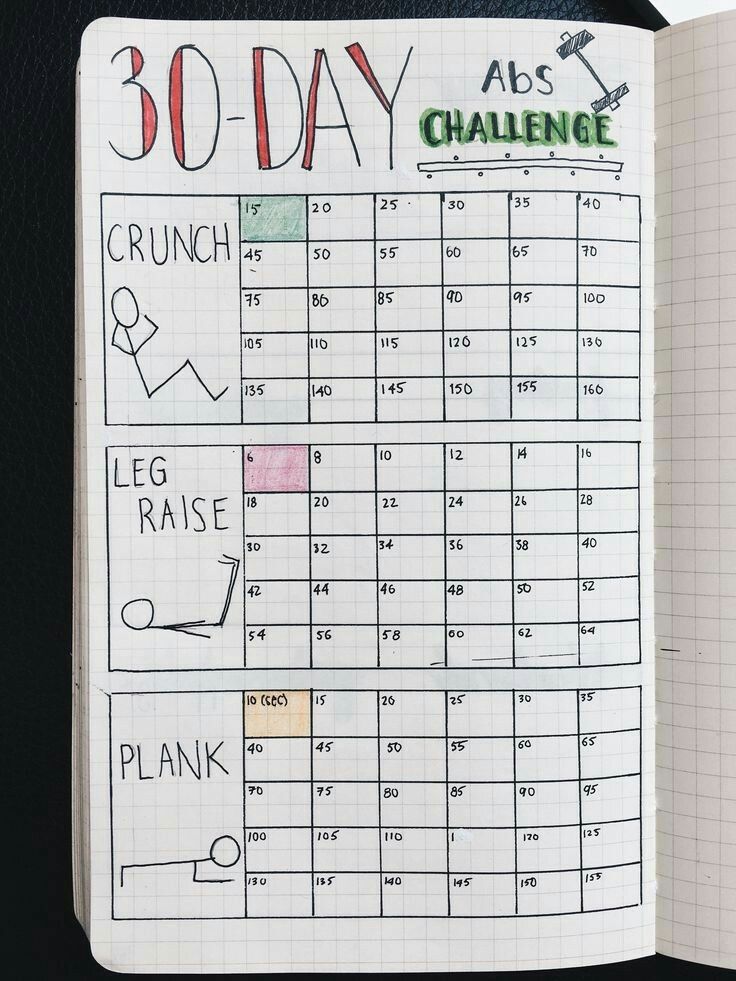 30-DAY
Abs
CHALLENGE
CRUNCH
15 20 25 30 35 40
45 50 55 60 65 70
75 80 85 90 95 100
105 110 115 120 125 130
135 140 145 150 155 160
LEG
RAISE
6 8 10 12 14 16
18 20 22 24 26 28
30 32 34 36 38 40
42 44 46 48 50 52
54 56 58 60 62 64
PLANK
10 (sec) 15 20 25 30 35
40 45 50 55 60 65
70 75 80 85 90 95
100 105 110 1 120 125
130 135 140 145 150 155